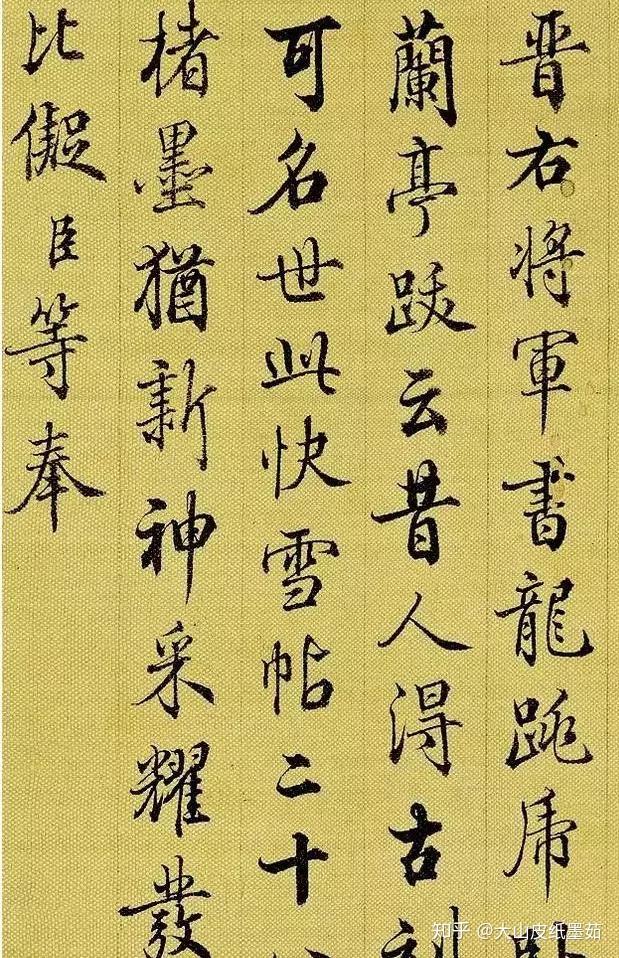 晋右將軍書龍跳虎卧
蘭亭跋云昔人得古刻
可名世此快雪帖二十八
楮墨猶新神采耀發
比儗臣等奉
知乎 @大山皮纸墨茹